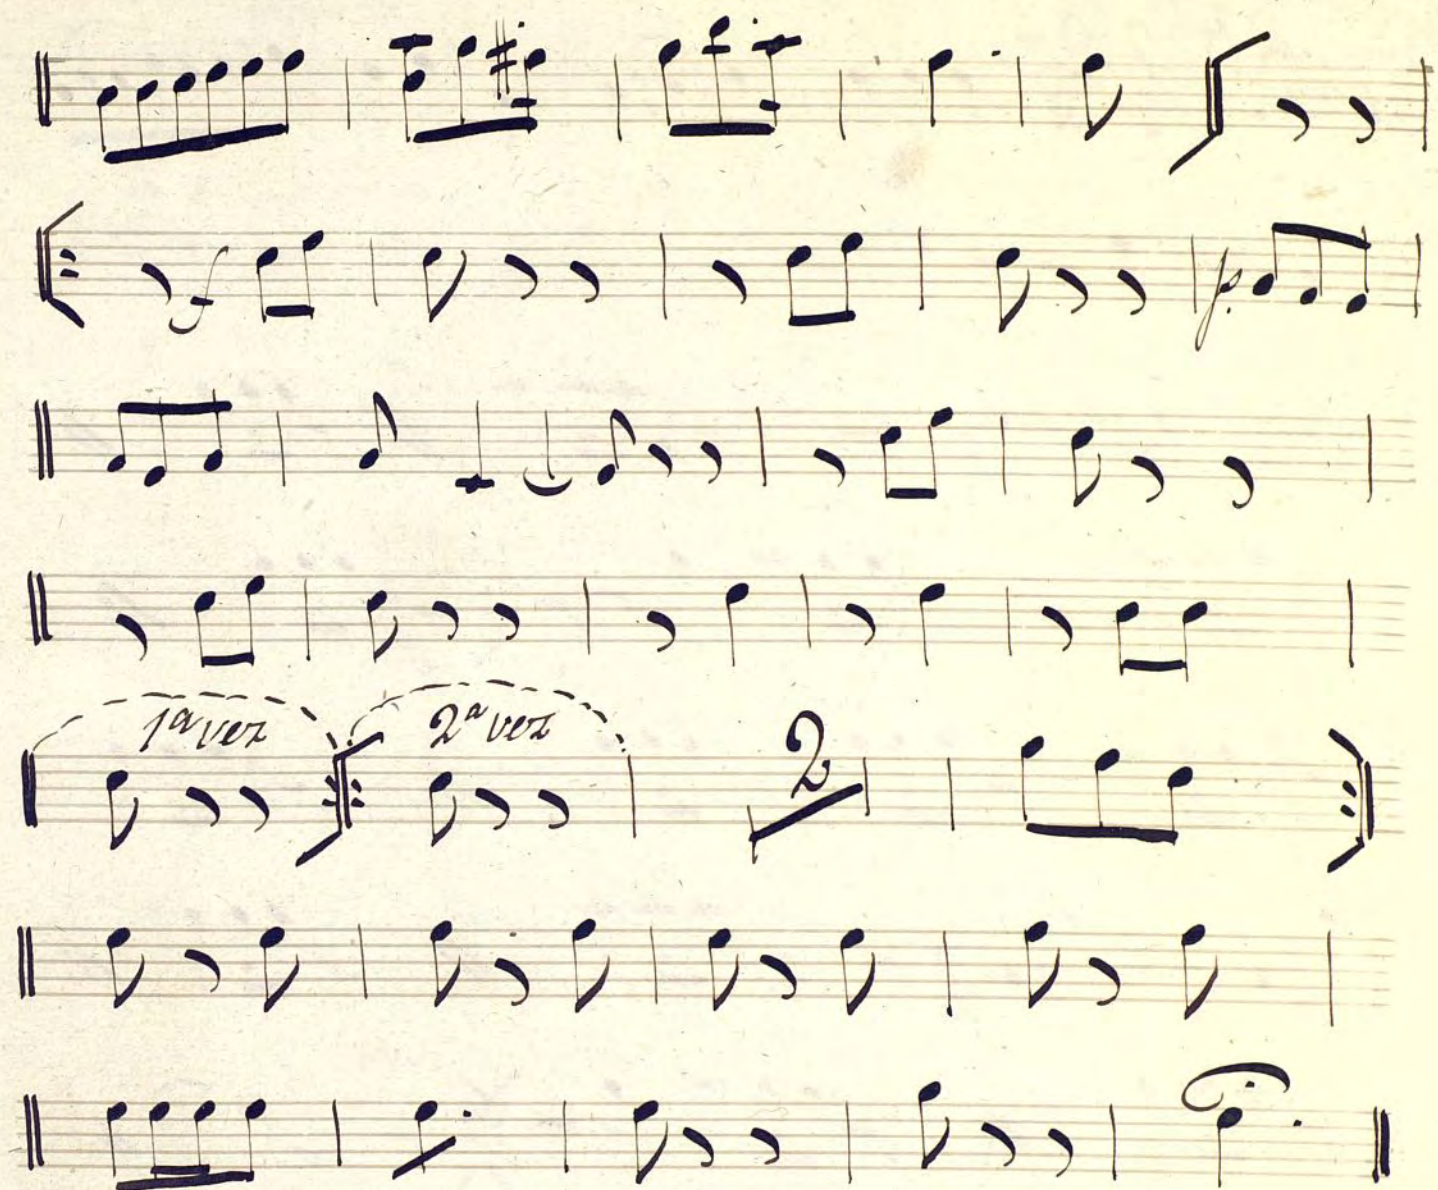 f
p.
1ª vez 2ª vez
2